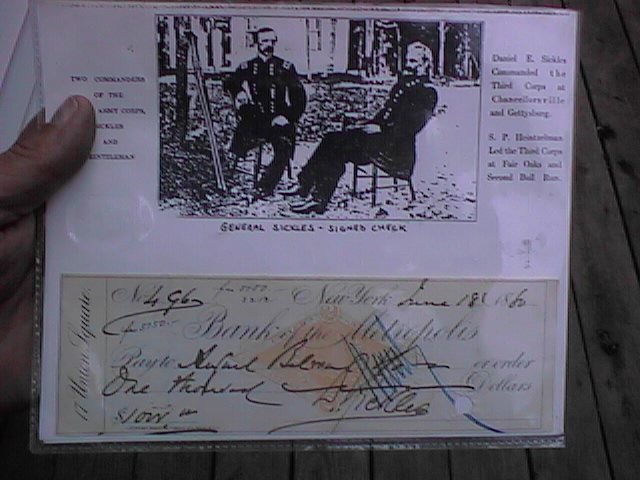 TWO COMMANDERS
OF THE
ARMY CORPS,
SICKLES
AND
HEINTZLEMAN
Daniel E. Sickles
Commanded the
Third Corps at
Chancellorsville
and Gettysburg.
S. P. Heintzelman
Led the Third Corps
at Fair Oaks and
Second Bull Run.
GENERAL SICKLES - SIGNED CHECK
17 Union Square.
No
New York June 18
Bank of the Metropolis
Pay to or order
One thousand Dollars
D. Sickles
$1000